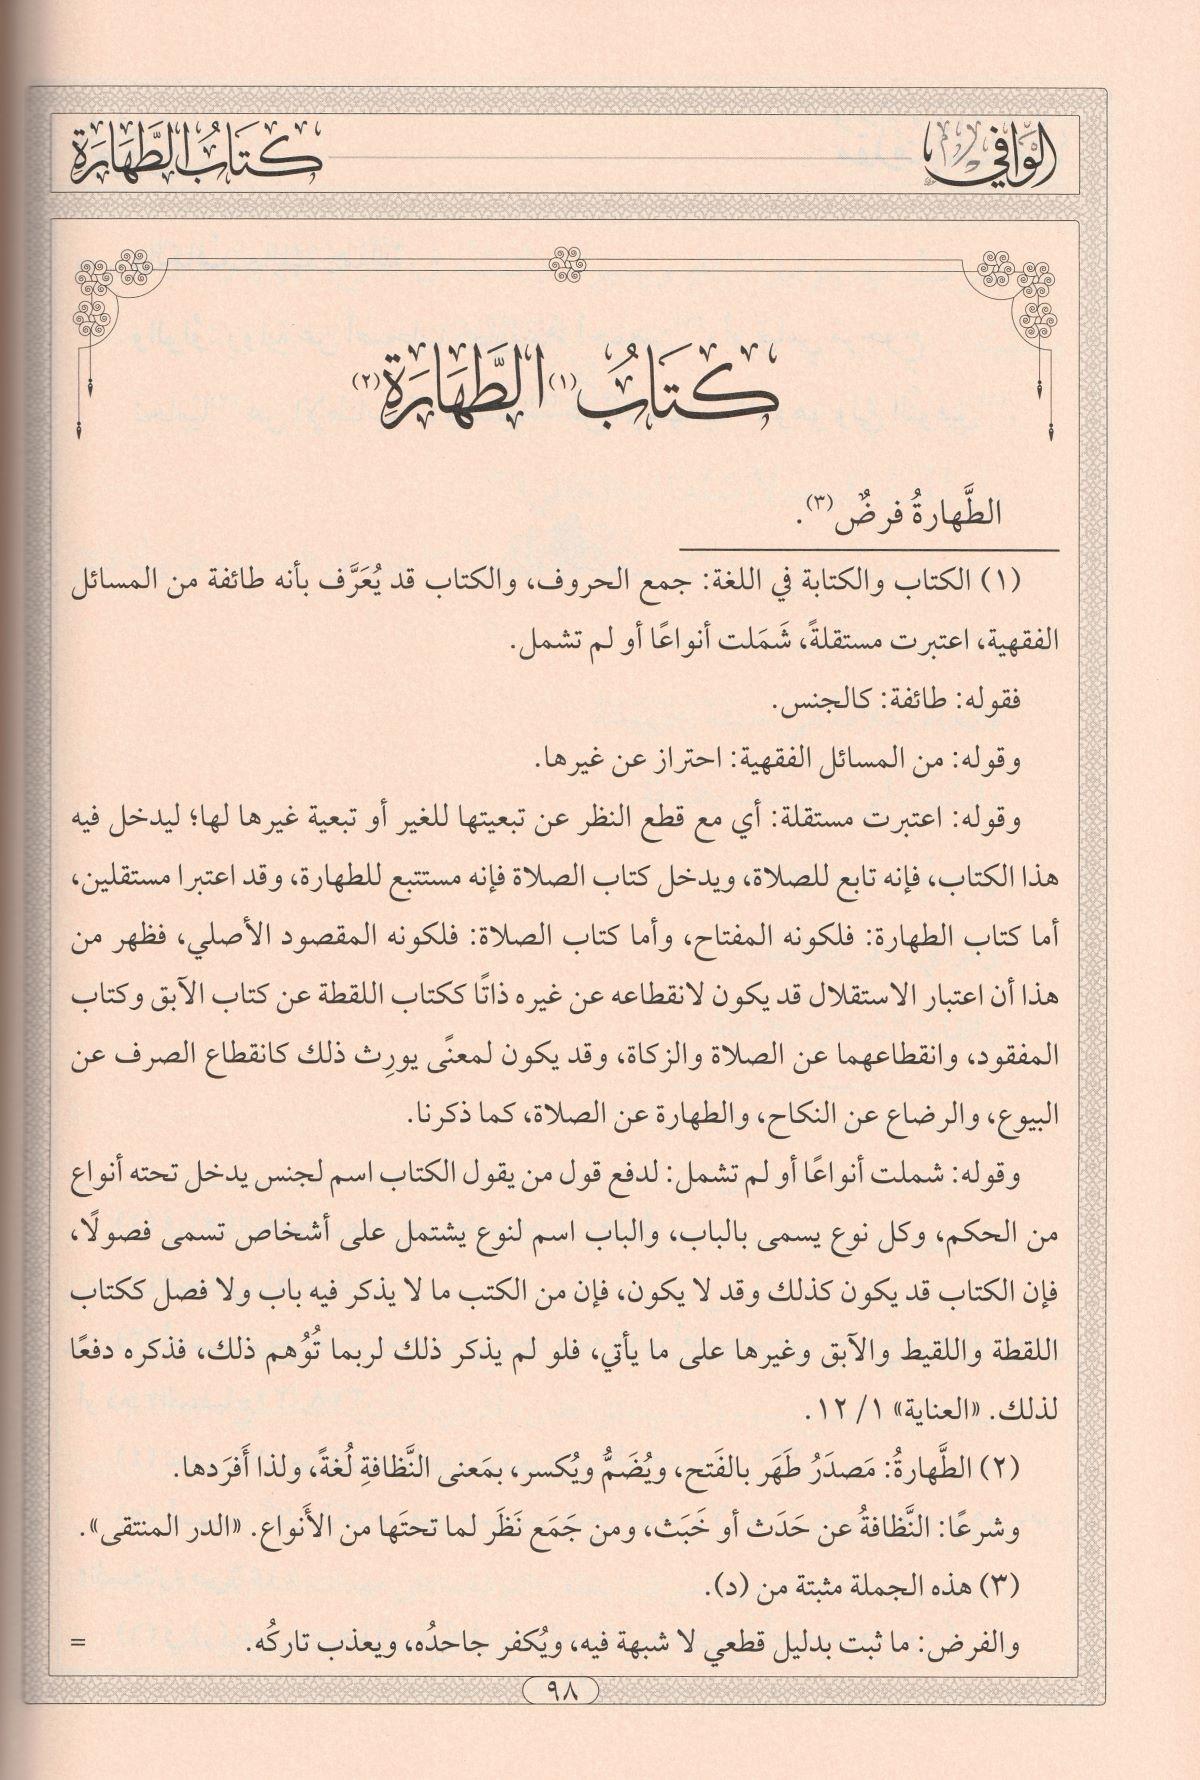 الوافي
كتاب الطَّهَارَة
كتابُ (١) الطَّهَارَة (٢)
الطَّهارةُ فرضٌ (٣).
(١) الكتاب والكتابة في اللغة: جمع الحروف، والكتاب قد يُعَرَّف بأنه طائفة من المسائل
الفقهية، اعتبرت مستقلةً، شَمَلت أنواعًا أو لم تشمل.
فقوله: طائفة: كالجنس.
وقوله: من المسائل الفقهية: احتراز عن غيرها.
وقوله: اعتبرت مستقلة: أي مع قطع النظر عن تبعيتها للغير أو تبعية غيرها لها؛ ليدخل فيه
هذا الكتاب، فإنه تابع للصلاة، ويدخل كتاب الصلاة فإنه مستتبع للطهارة، وقد اعتبرا مستقلين،
أما كتاب الطهارة: فلكونه المفتاح، وأما كتاب الصلاة: فلكونه المقصود الأصلي، فظهر من
هذا أن اعتبار الاستقلال قد يكون لانقطاعه عن غيره ذاتًا ككتاب اللقطة عن كتاب الآبق وكتاب
المفقود، وانقطاعهما عن الصلاة والزكاة، وقد يكون لمعنًى يورِث ذلك كانقطاع الصرف عن
البيوع، والرضاع عن النكاح، والطهارة عن الصلاة، كما ذكرنا.
وقوله: شملت أنواعًا أو لم تشمل: لدفع قول من يقول الكتاب اسم لجنس يدخل تحته أنواع
من الحكم، وكل نوع يسمى بالباب، والباب اسم لنوع يشتمل على أشخاص تسمى فصولًا،
فإن الكتاب قد يكون كذلك وقد لا يكون، فإن من الكتب ما لا يذكر فيه باب ولا فصل ككتاب
اللقطة واللقيط والآبق وغيرها على ما يأتي، فلو لم يذكر ذلك لربما تُوُهم ذلك، فذكره دفعًا
لذلك. «العناية» ١/ ١٢.
(٢) الطَّهارةُ: مَصدَرُ طَهَر بالفَتح، ويُضَمُّ ويُكسر، بمَعنى النَّظافةِ لُغةً، ولذا أَفرَدها.
وشرعًا: النَّظافةُ عن حَدَث أو خَبَث، ومن جَمَع نَظَر لما تحتَها من الأَنواع. «الدر المنتقى».
(٣) هذه الجملة مثبتة من (د).
والفرض: ما ثبت بدليل قطعي لا شبهة فيه، ويُكفر جاحدُه، ويعذب تاركُه. =
٩٨